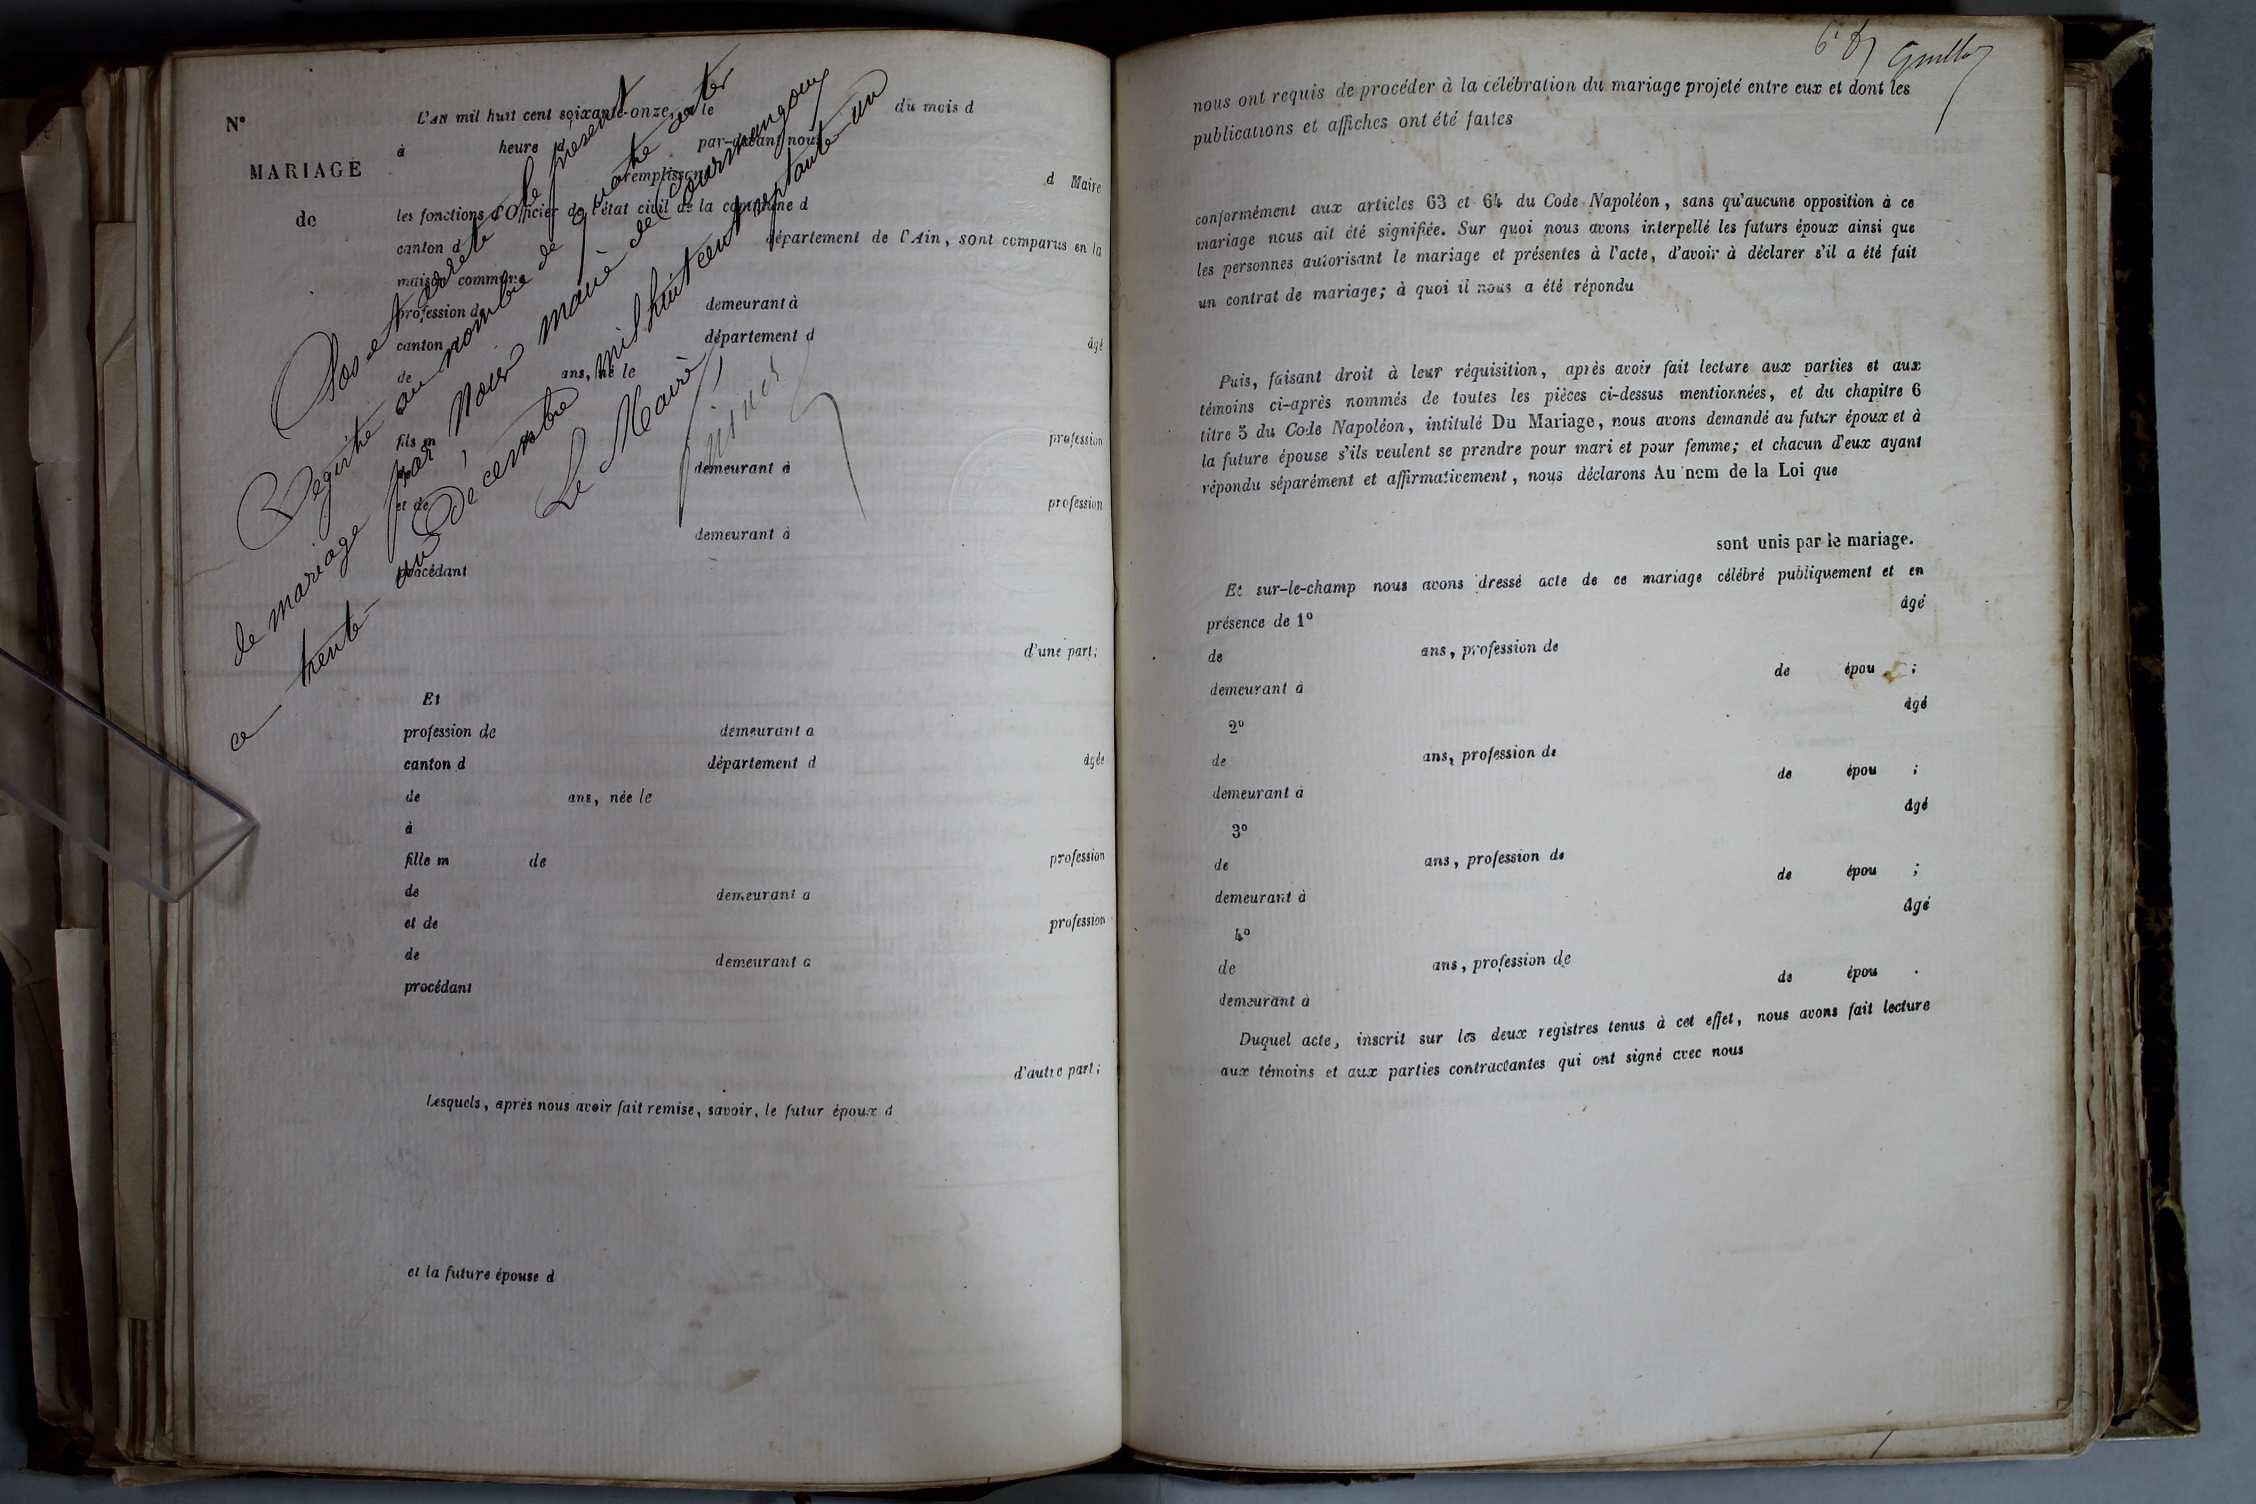 N°
MARIAGE
de
L'AN mil huit cent soixante-onze, et le du mois d
à heure d par-devant nous
remplissant
d Maire
les fonctions d'Officier de l'état civil de la commune d
canton d département de l'Ain, sont comparus en la
maison commune
profession de demeurant à
canton département d âgé
de ans, né le
fils m profession
demeurant à
et de profession
demeurant à
procédant
d'une part;
Clos et arrêté le présent
Registre au nombre de quatre actes
de mariage par Nous maire de Courmangoux
ce trente-un Décembre mil huit cent septante-un
Le Maire,
Et
profession de demeurant à
canton d département d âgée
de ans, née le
à
fille m de profession
de demeurant à
et de profession
de demeurant à
procédant
d'autre part;
Lesquels, après nous avoir fait remise, savoir, le futur époux d
et la future épouse d
nous ont requis de procéder à la célébration du mariage projeté entre eux et dont les
publications et affiches ont été faites
conformément aux articles 63 et 64 du Code Napoléon, sans qu'aucune opposition à ce
mariage nous ait été signifiée. Sur quoi nous avons interpellé les futurs époux ainsi que
les personnes autorisant le mariage et présentes à l'acte, d'avoir à déclarer s'il a été fait
un contrat de mariage; à quoi il nous a été répondu
Puis, faisant droit à leur réquisition, après avoir fait lecture aux parties et aux
témoins ci-après nommés de toutes les pièces ci-dessus mentionnées, et du chapitre 6
titre 5 du Code Napoléon, intitulé Du Mariage, nous avons demandé au futur époux et à
la future épouse s'ils veulent se prendre pour mari et pour femme; et chacun d'eux ayant
répondu séparément et affirmativement, nous déclarons Au nom de la Loi que
sont unis par le mariage.
Et sur-le-champ nous avons dressé acte de ce mariage célébré publiquement et en
présence de 1° âgé
de ans, profession de
demeurant à de épou ;
2° âgé
de ans, profession de
demeurant à de épou ;
3° âgé
de ans, profession de
demeurant à de épou ;
4° âgé
de ans, profession de
demeurant à de épou .
Duquel acte, inscrit sur les deux registres tenus à cet effet, nous avons fait lecture
aux témoins et aux parties contractantes qui ont signé avec nous